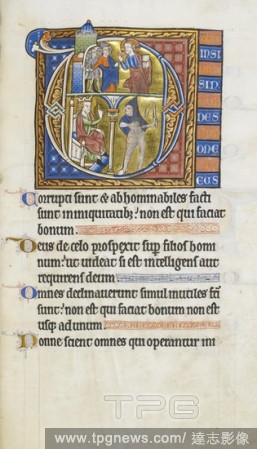 INSI
SIN
DES
ONE
EUS
Corrupti sunt & abhominabiles facti
sunt in iniquitatib; non est qui faciat
bonum.
Deus de celo prospexit sup filios homi
num: ut uideat si est intelligens aut
requirens deum
Omnes declinauerunt simul inutiles fc̄i
sunt: non est qui faciat bonum non est
usq; ad unum
Nonne scient omnes qui operantur ini
TPG
www.tpgnews.com/達志影像